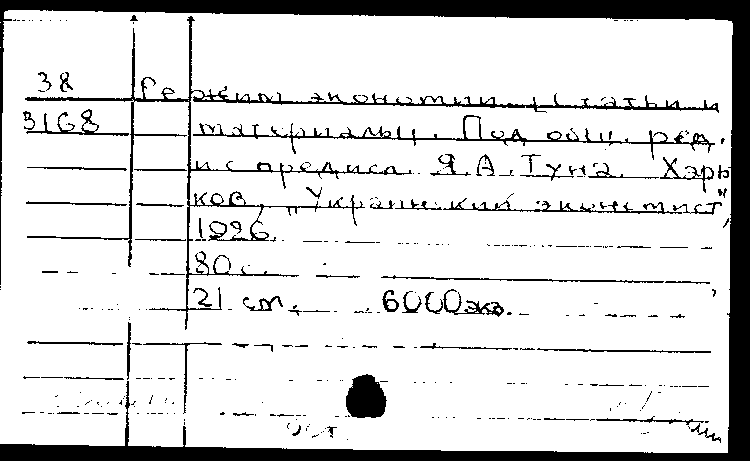 38 Режим экономии. [Статьи и
3168 материалы]. Под общ. ред.
и с предисл. Я.А.Туна. Харь
ков, „Украинский экономист",
1926.
80 с.
21 см. 6000 экз.